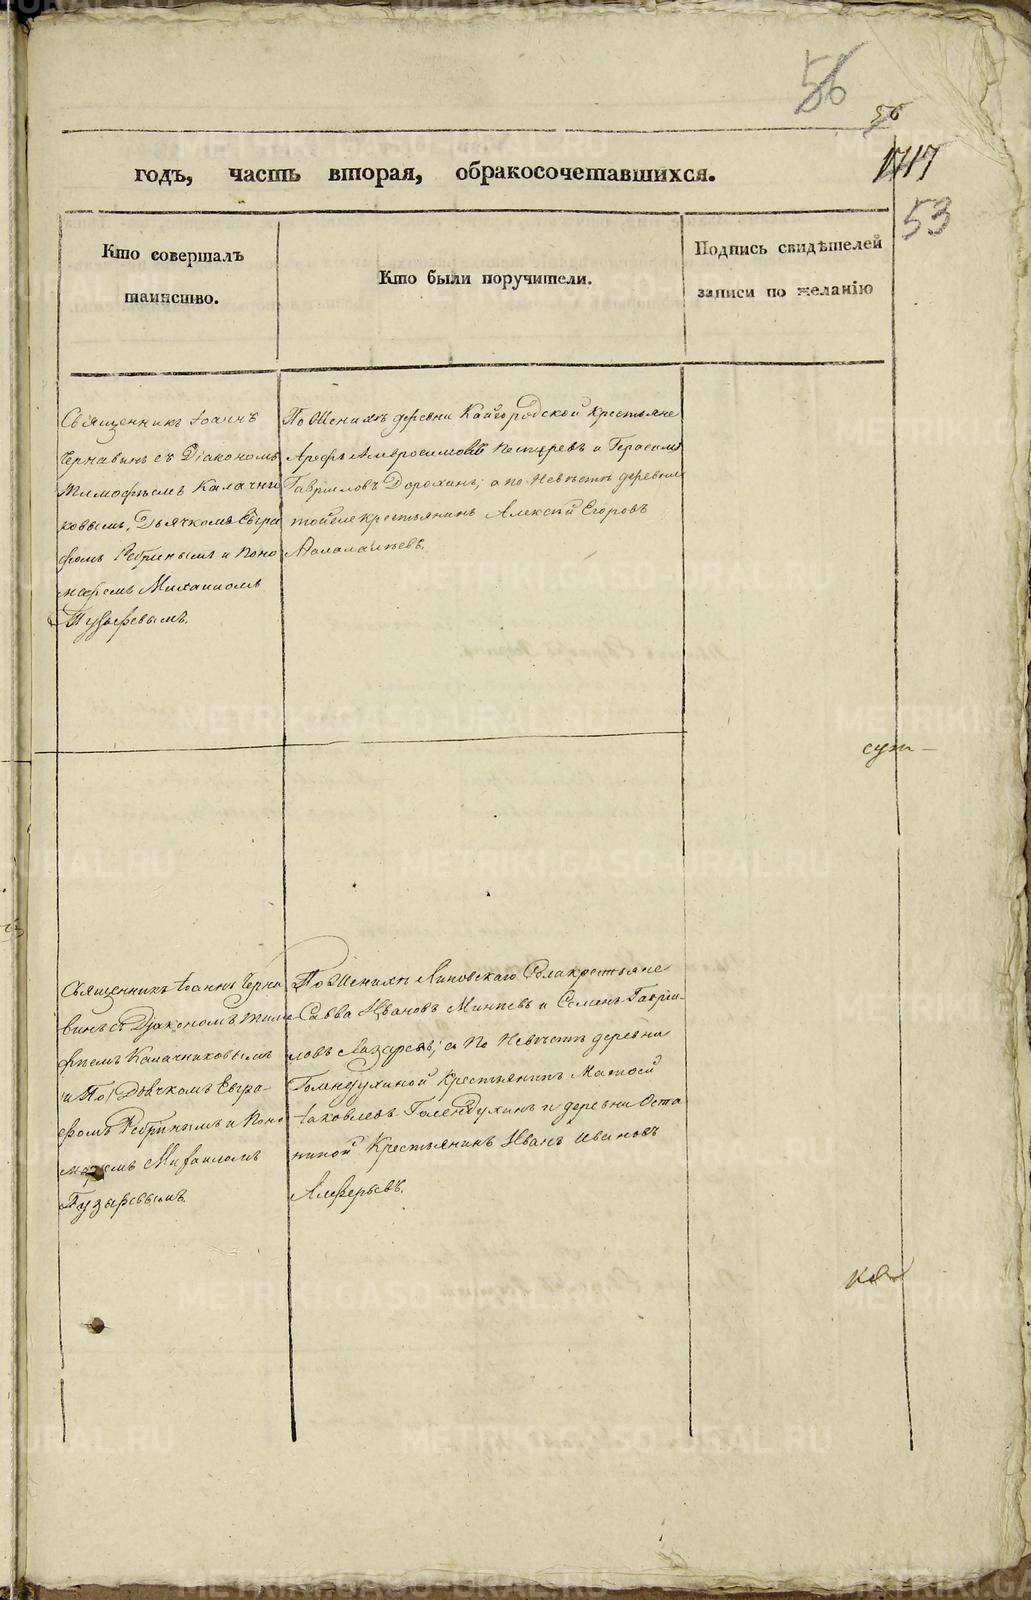 56
56
1717
53
годъ, часть вторая, обракосочетавшихся.
Кто совершалъ
таинство.
Кто были поручители.
Подпись свидѣтелей
записи по желанію
Священникъ Іоаннъ
Чернавинъ съ Діакономъ
Тимофѣемъ Калачни
ковымъ, Дьячкомъ Евгра
фомъ Ребринымъ и Поно
маремъ Михаиломъ
Пузыревымъ.
По Женихѣ деревни Кайгородской Крестьяне
Арефа Амвросимовъ Пестеревъ и Герасимъ
Гавриловъ Дорохинъ; а по Невѣстѣ деревни
тойже крестьянинъ Алексѣй Егоровъ
Маламатьевъ.
Священникъ Іоаннъ Черна
винъ съ Діакономъ Тимо
фѣемъ Калачниковымъ
и Дьячкомъ Евгра-
фомъ Ребринымъ и Поно
маремъ Михаиломъ
Пузыревымъ.
По Женихѣ Липовскаго Села крестьяне
Савва Ивановъ Минѣевъ и Семенъ Гаврии-
ловъ Лазаревъ; а По Невѣстѣ деревни
Голендухиной Крестьянинъ Матѳей
Іаковлевъ Голендухинъ и деревни Оста
ниной Крестьянинъ Иванъ Ивановъ
Алферьевъ.
METRIKI.GASO-URAL.RU